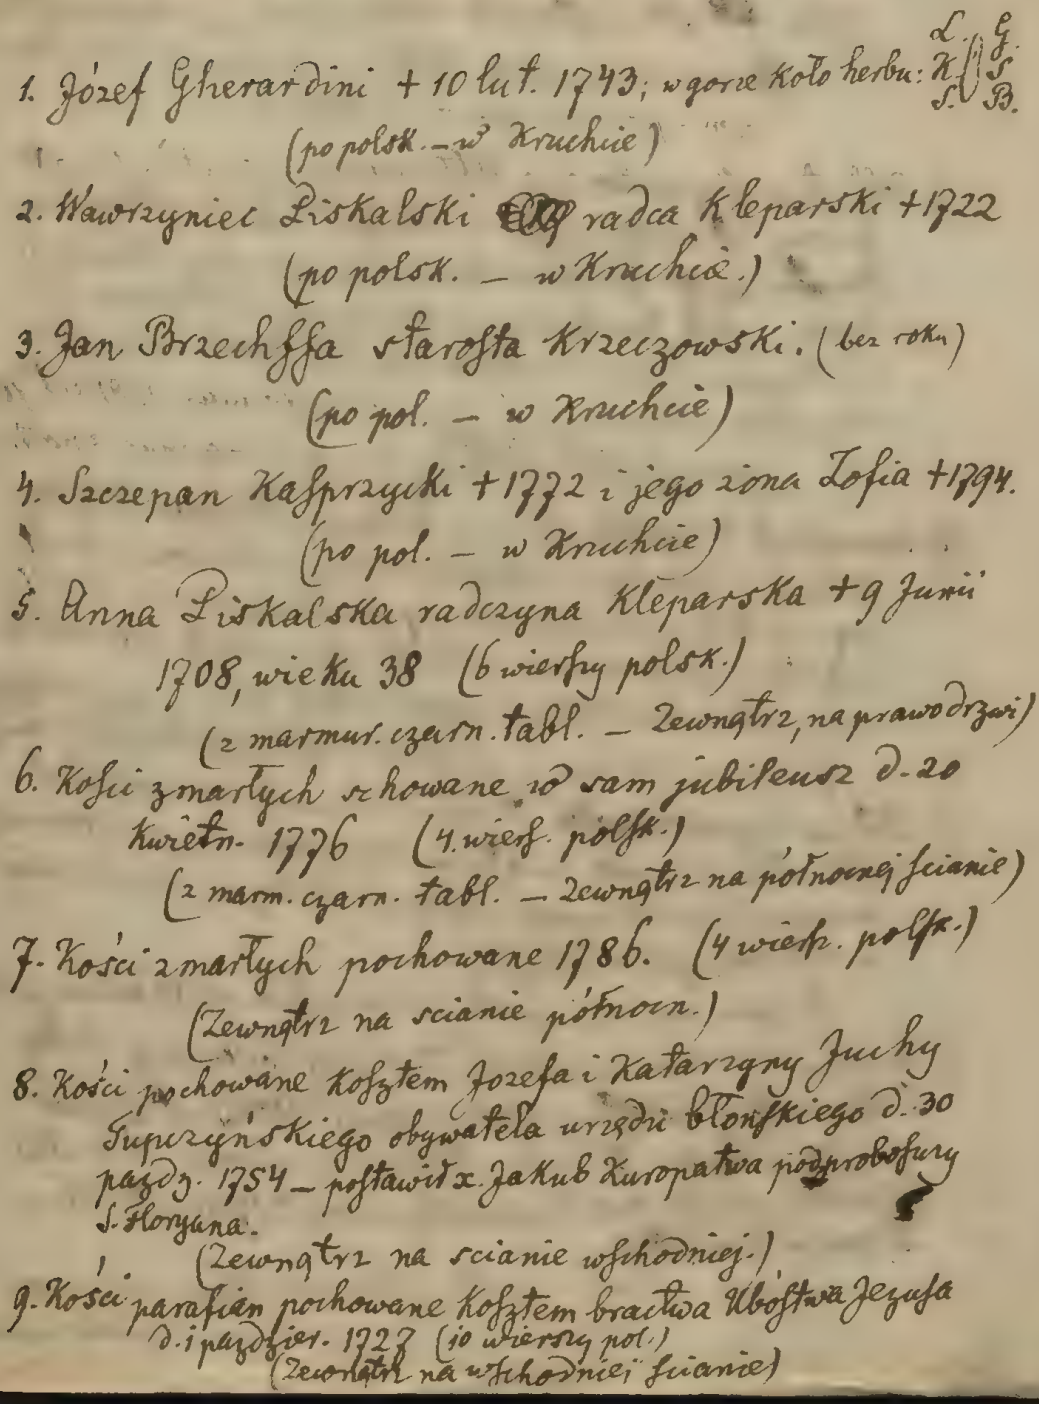 L. G.
1. Józef Gherardini + 10 lut. 1743; w gorze koło herbu: K S
S. B.
(po polsk. – w Kruchcie)
2. Wawrzyniec Liskalski radca Kleparski + 1722
(po polsk. – w Kruchcie.)
3. Jan Brzechffa starosta Krzeczowski. (bez roku)
(po pol. – w Kruchcie)
4. Szczepan Kasprzycki + 1772 i jego zona Zofia + 1794.
(po pol. – w Kruchcie)
5. Anna Liskalska radczyna Kleparska + 9 Junii
1708, wieku 38 (6 wierszy polsk.)
(z marmur. czarn. tabl. – Zewnątrz, na prawo drzwi)
6. Kości zmarłych schowane w sam jubileusz d. 20
Kwietn. 1776 (4 wiersz. polsk.)
(z marm. czarn. tabl. – Zewnątrz na północnej scianie)
7. Kości zmarłych pochowane 1786. (4 wiersz. polsk.)
(Zewnątrz na scianie północn.)
8. Kości pochowane kosztem Jozefa i Katarzyny Juchy
Tupczyńskiego obywatela urzędu błońskiego d. 30
pazdz. 1754 – postawił x. Jakub Kuropatwa podproboszczy
S. Floryana.
(Zewnątrz na scianie wschodniej.)
9. Kości parafian pochowane Kosztem bractwa Ubóstwa Jezusa
d. 1 pazdzier. 1727 (10 wierszy pol.)
(Zewnątrz na wschodniej scianie)